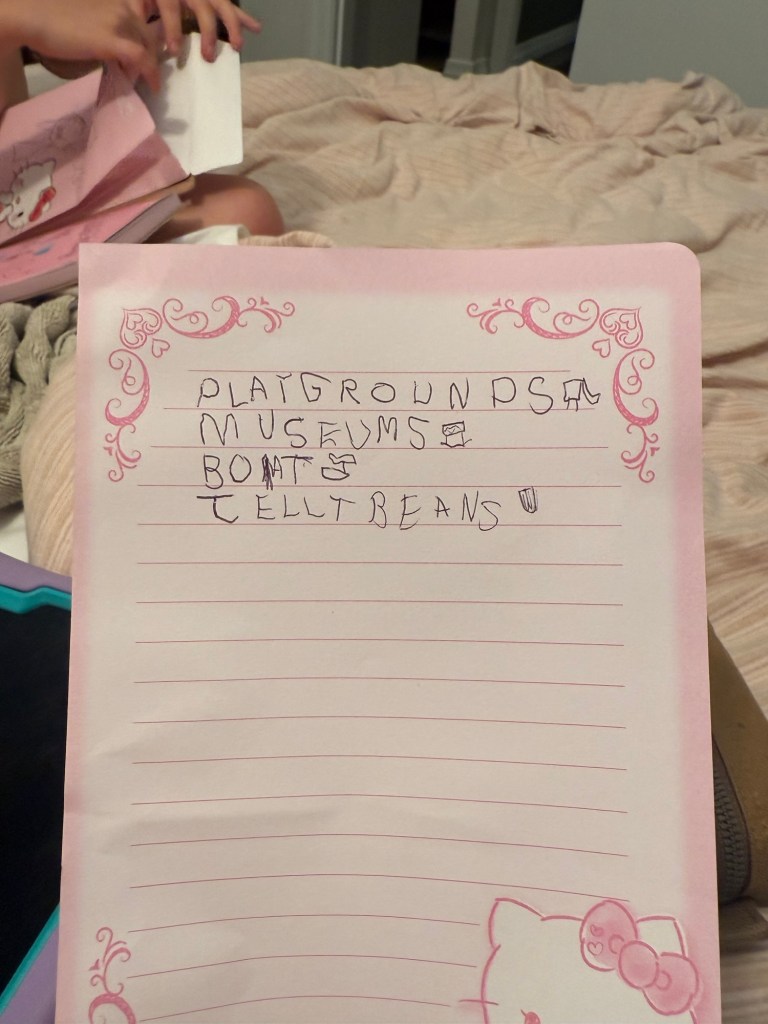 PLAYGROUNDS
MUSEUMS
BOAT
JELLYBEANS